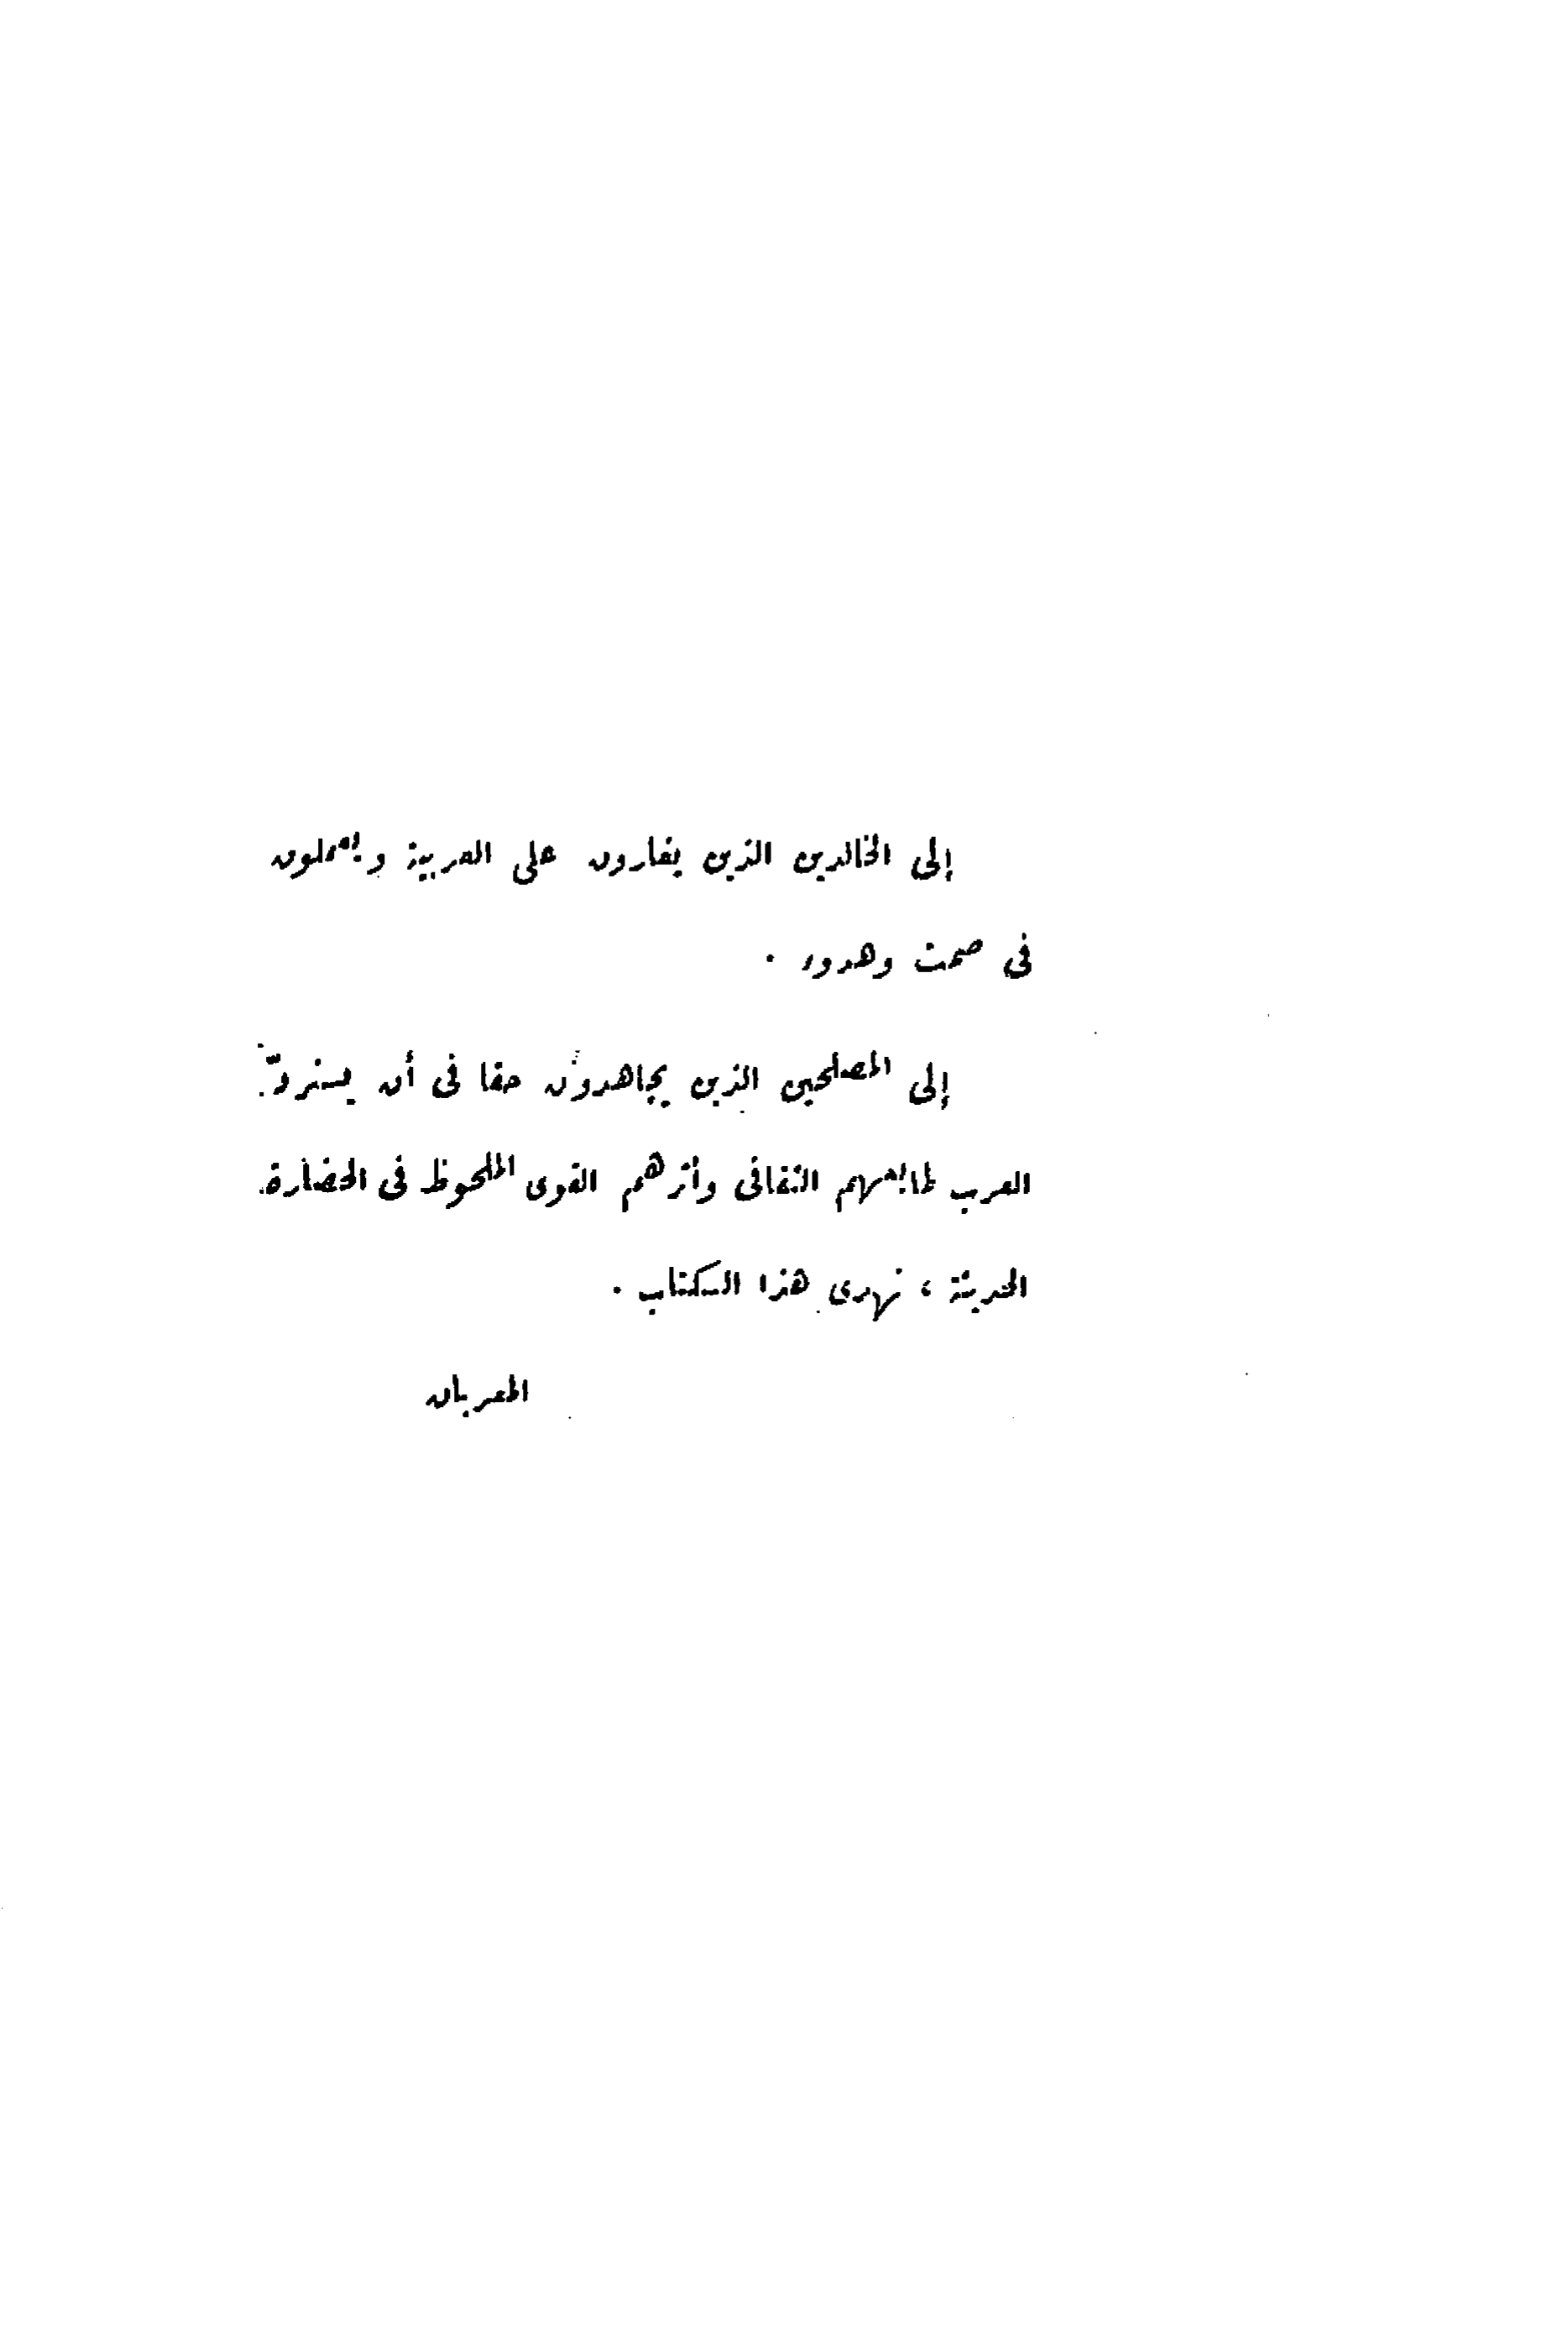 إلى الخالدين الذين يغارون على العربية ويعملون
فى صمت وهدوء .
إلى المصلحين الذين يجاهدون حقا فى أن يستردّ
العرب طابعهم الثقافى وأثرهم القوى الملحوظ فى الحضارة
الحديثة ، نهدى هذا الكتاب .
المعربان